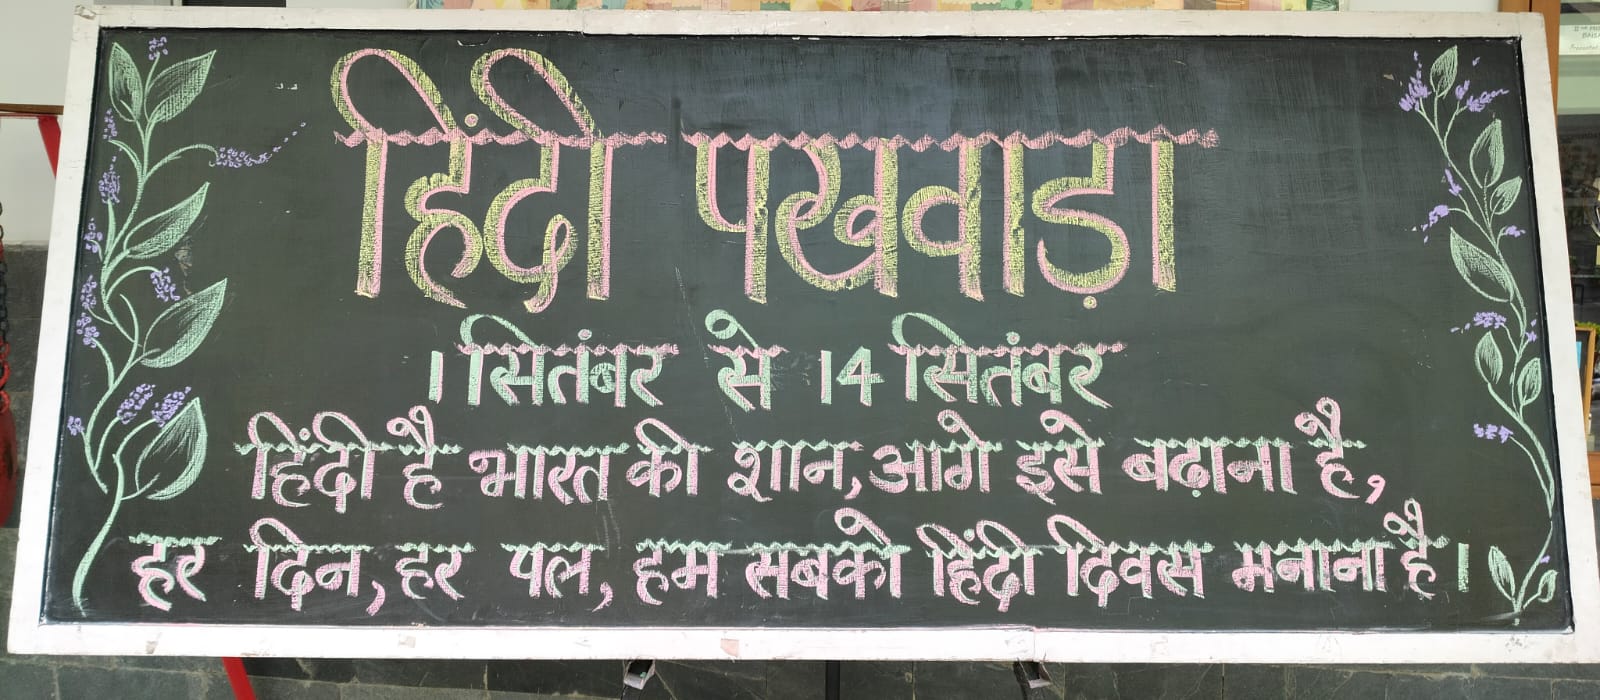 हिंदी पखवाड़ा
1 सितंबर से 14 सितंबर
हिंदी है भारत की शान, आगे इसे बढ़ाना है,
हर दिन, हर पल, हम सबको हिंदी दिवस मनाना है।